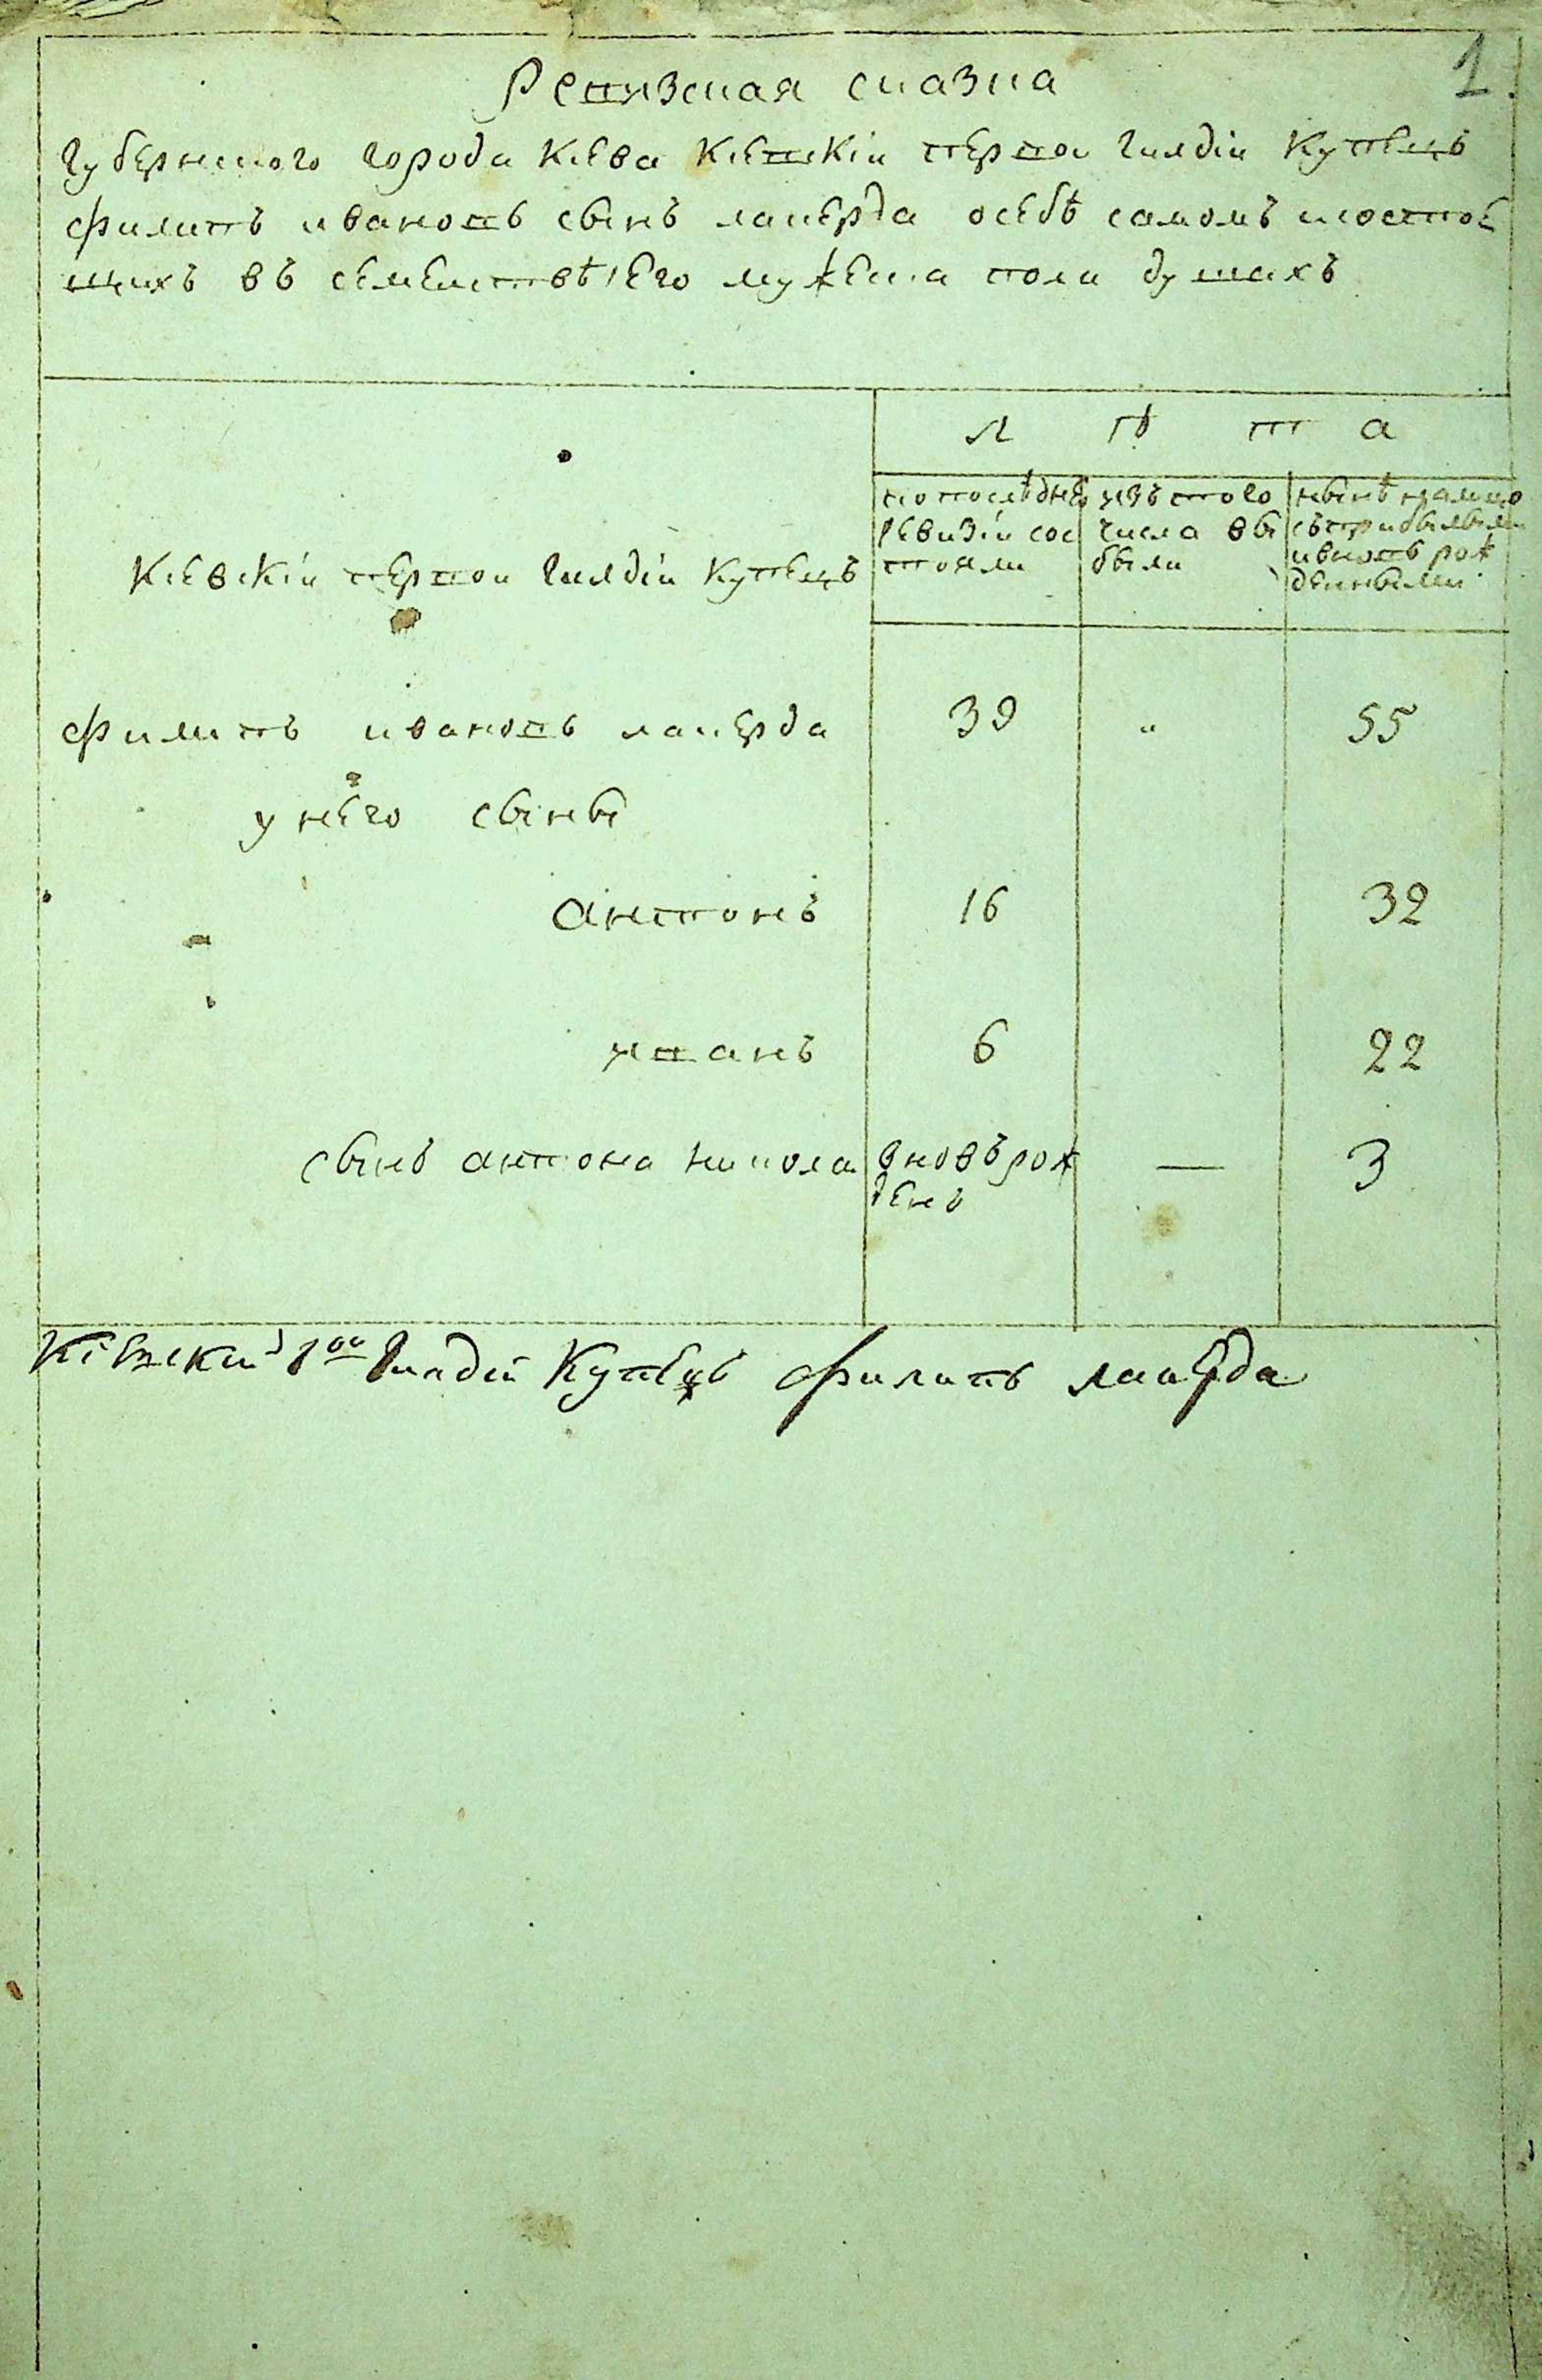 1.
Ревизская сказка
Губернского города Киева Киевскіи первои гилдіи Купецъ
филипъ ивановъ сынъ лакерда осебѣ самомъ исостое
щихъ въ семеиствѣ Его мужеска пола душахъ
Л Ѣ Т А
Киевскіи первои гилдіи Купецъ
попослѣднеи ревизіи сос тояли
изътого числа вы были
нынѣ налицо съприбылыми ивновь рож денными
филипъ ивановъ лакерда 39 " 55
у него сыны
Антонъ 16 32
иванъ 6 22
сынъ антона никола вновъ рож — 3
денъ
Кіевскии 1ои Гилдіи Купецъ филипъ лакерда